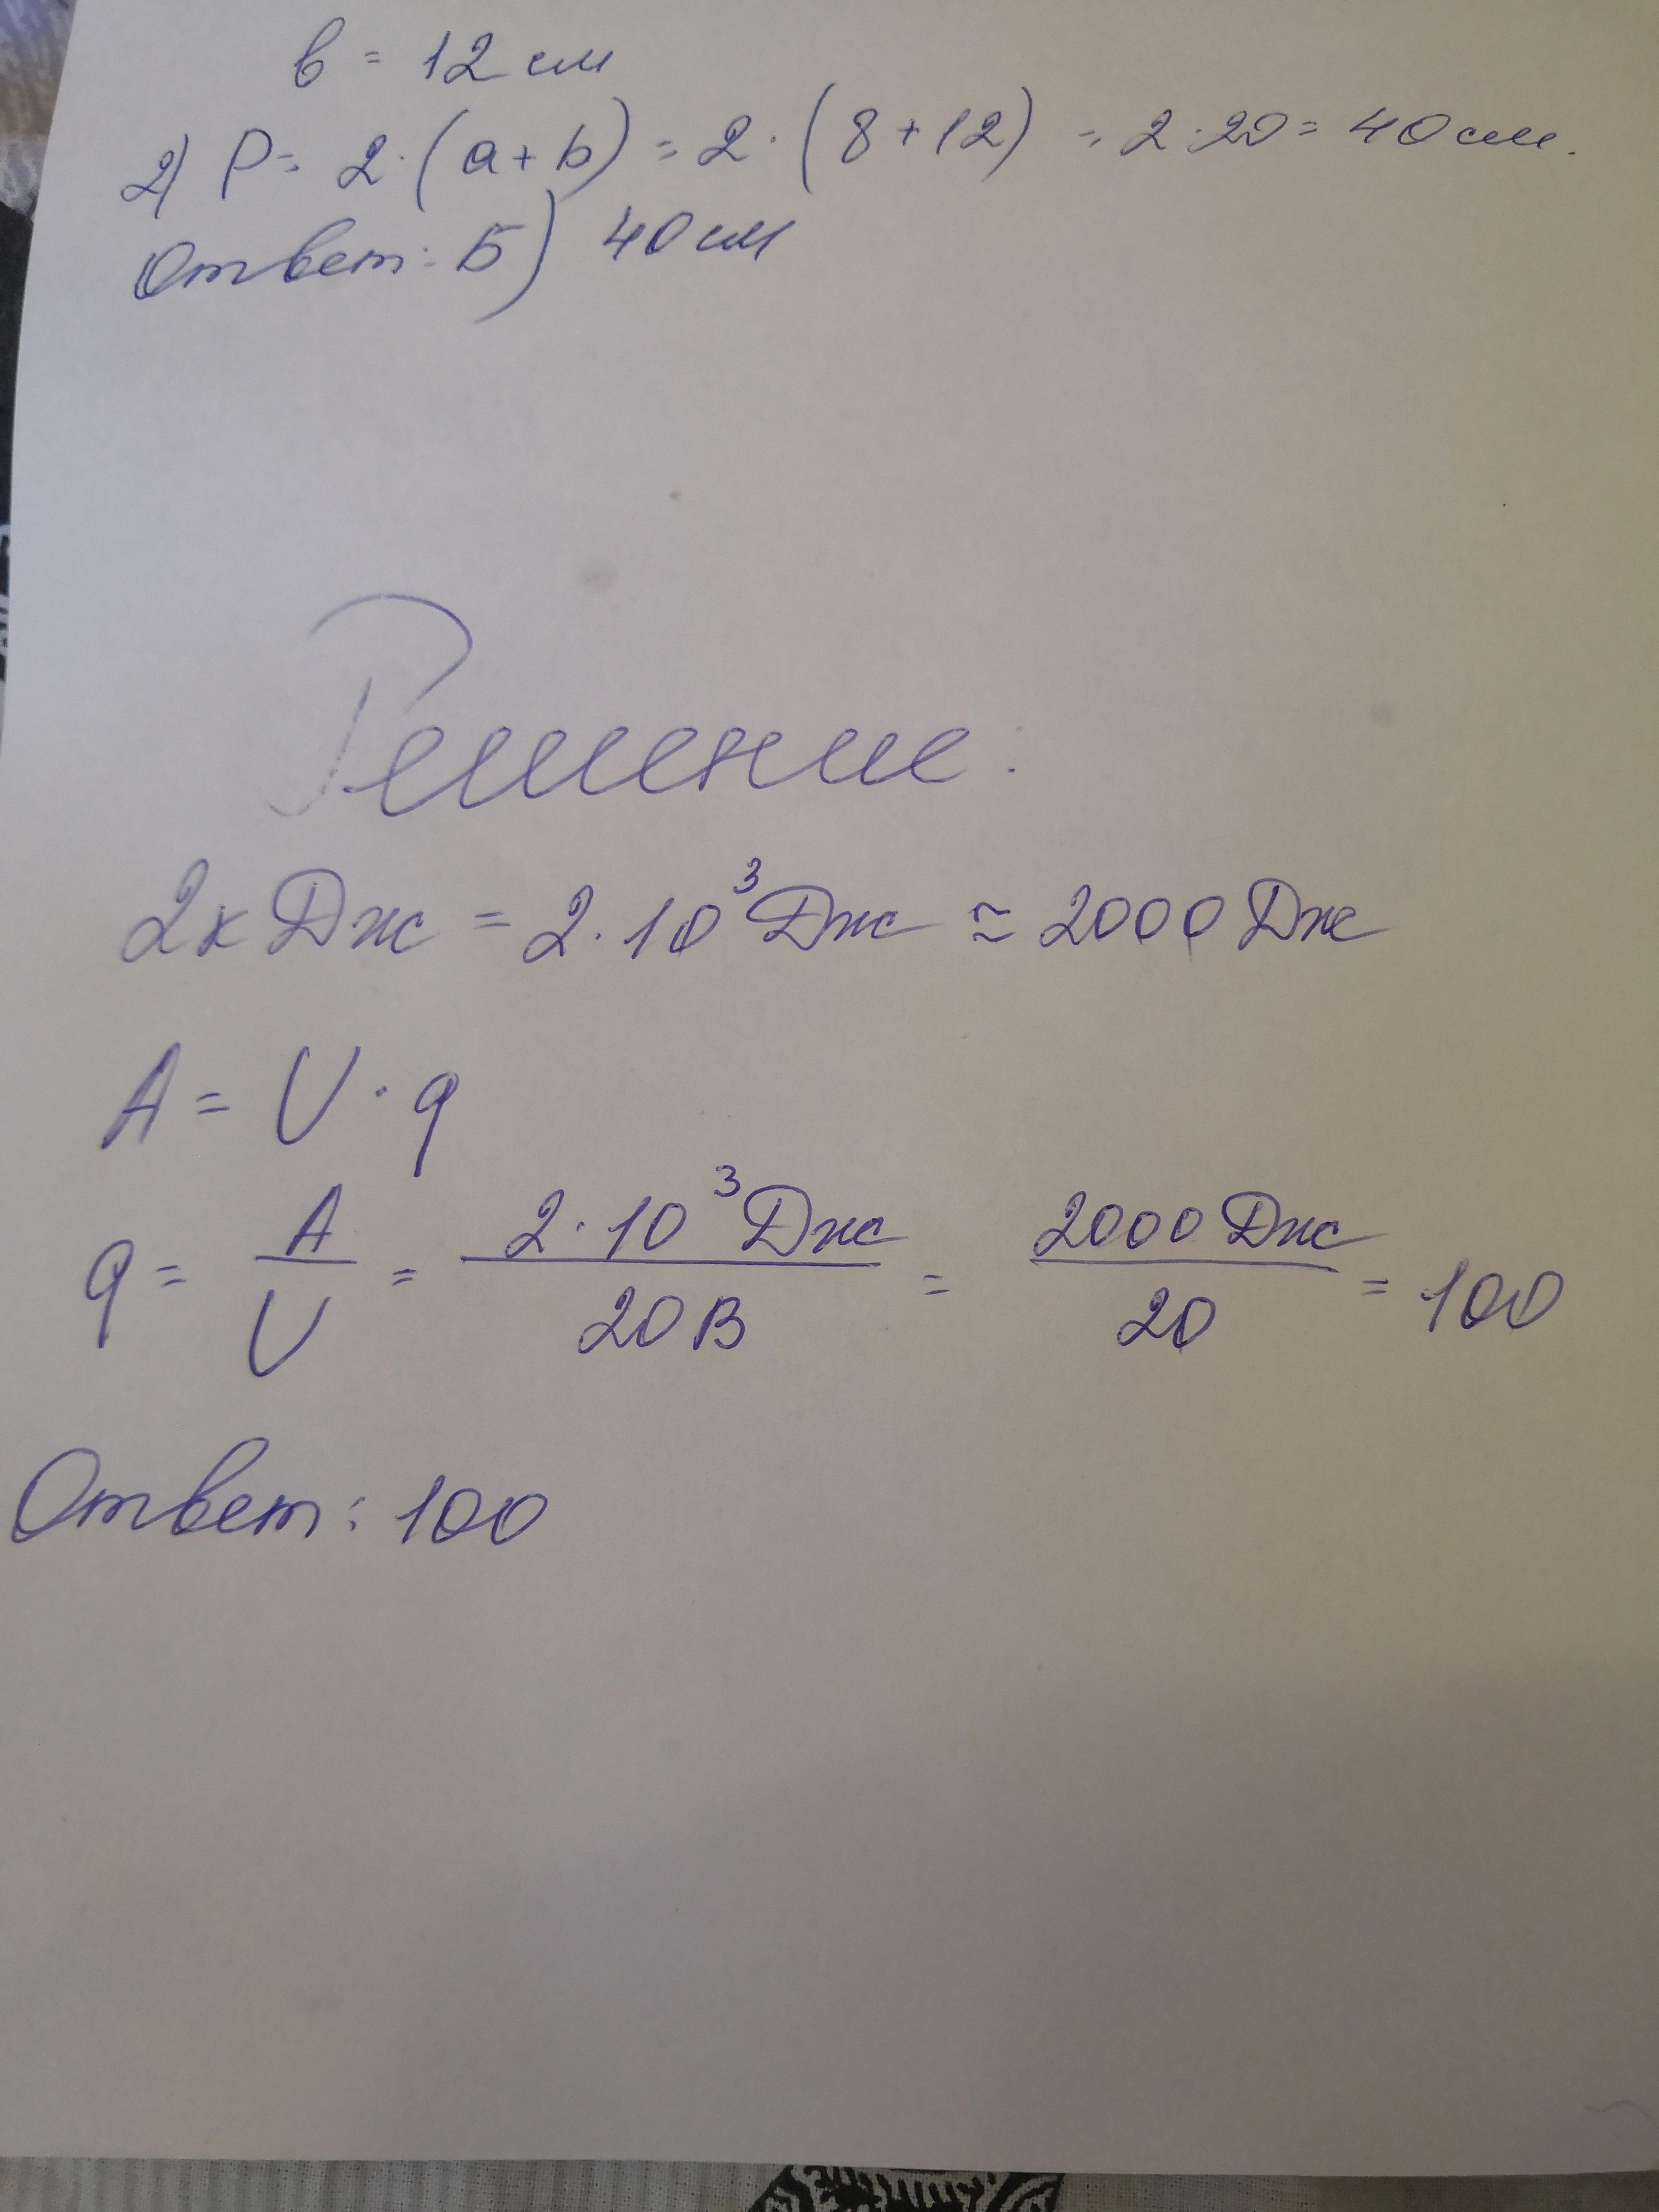 в = 12 см
2) P = 2 · (a + b) = 2 · (8 + 12) = 2 · 20 = 40 см.
Ответ: Б) 40 см
Решение:
2к Дж = 2 · 10³ Дж ≃ 2000 Дж
A = U · q
q = A/U = 2 · 10³ Дж/20 В = 2000 Дж/20 = 100
Ответ: 100